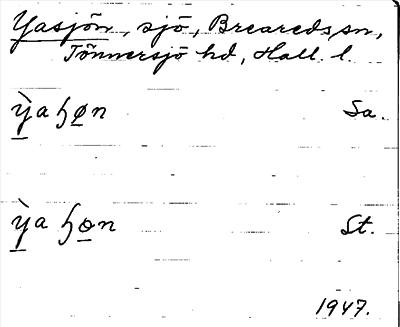 Yasjön, sjö, Breareds sn,
Tönnersjö hd, Hall. l.
ỳ̠aɧø̠n Sa.
ỳ̠aɧo̠n St.
1947.